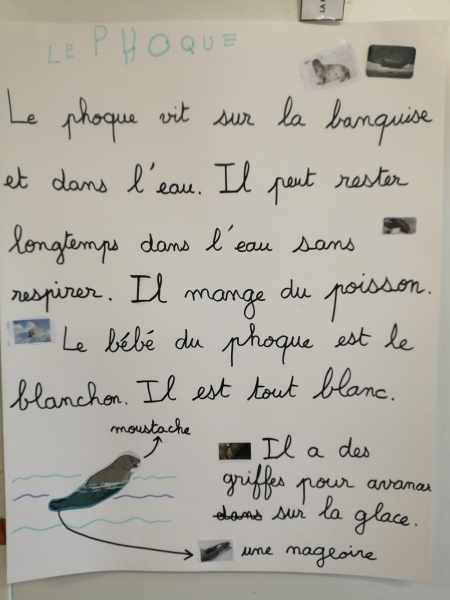 LE PHOQUE
Le phoque vit sur la banquise
et dans l'eau. Il peut rester
longtemps dans l'eau sans
respirer. Il mange du poisson.
Le bébé du phoque est le
blanchon. Il est tout blanc.
moustache
Il a des
griffes pour avancer
dans sur la glace.
une nageoire